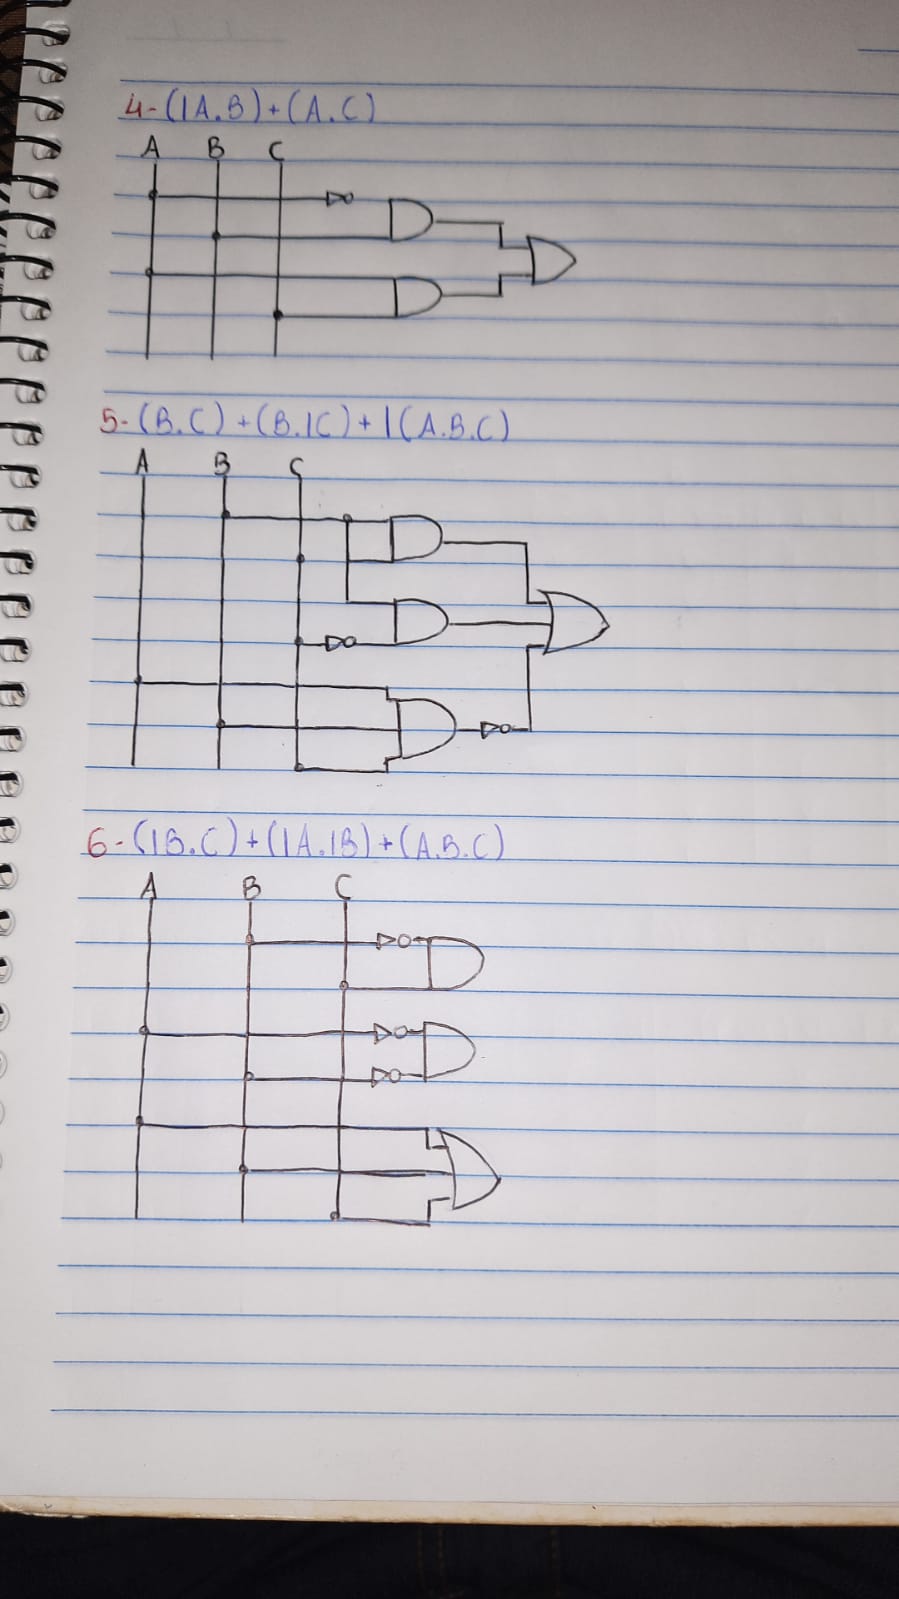 4-(1A.B)+(A.C)
A B C
5-(B.C)+(B.1C)+1(A.B.C)
A B C
6-(1B.C)+(1A.1B)+(A.B.C)
A B C